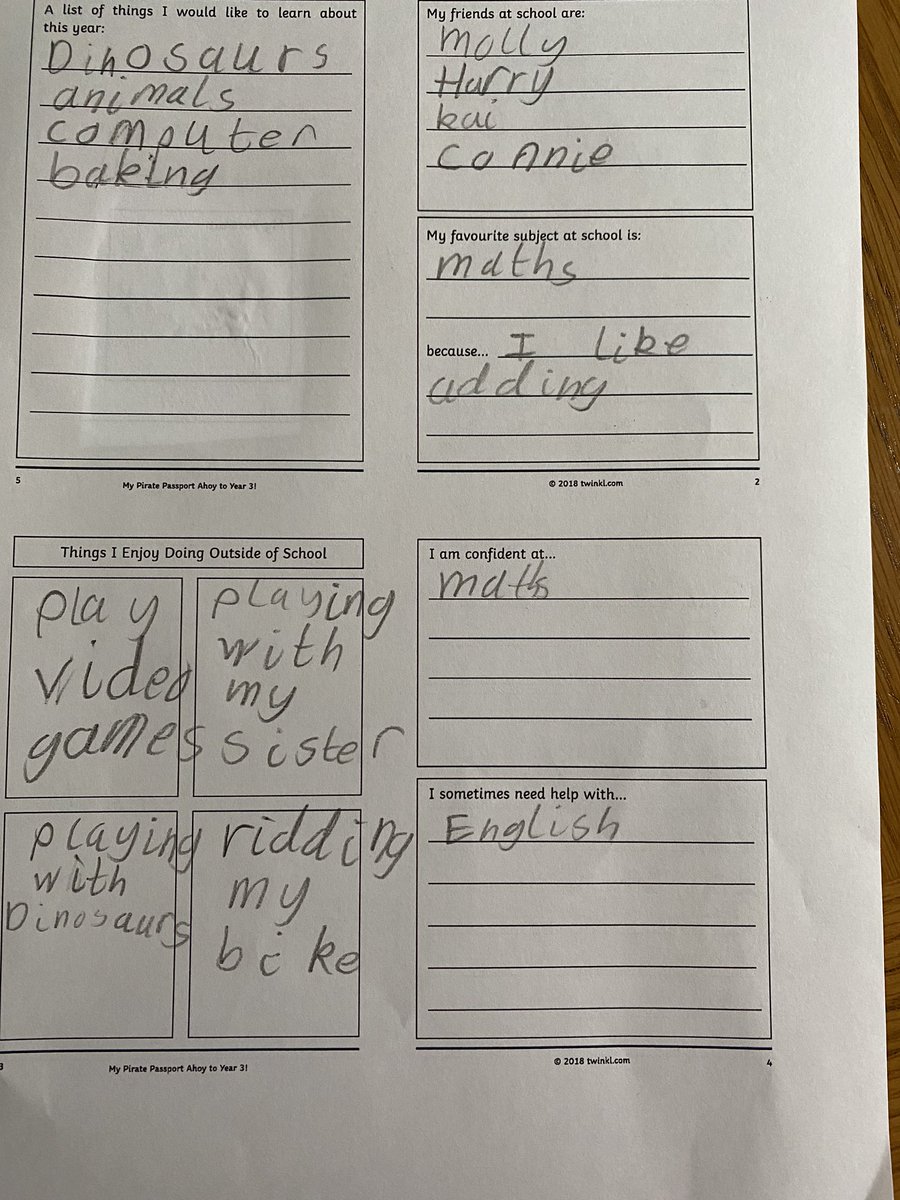 A list of things I would like to learn about
this year:
Dinosaurs
animals
computer
baking
5
My Pirate Passport Ahoy to Year 3!
My friends at school are:
Molly
Harry
kai
connie
My favourite subject at school is:
maths
because... I like
adding
© 2018 twinkl.com
2
Things I Enjoy Doing Outside of School
play
video
games
playing
with
my
sister
playing
with
Dinosaurs
ridding
my
bike
3
My Pirate Passport Ahoy to Year 3!
I am confident at...
maths
I sometimes need help with...
English
© 2018 twinkl.com
4